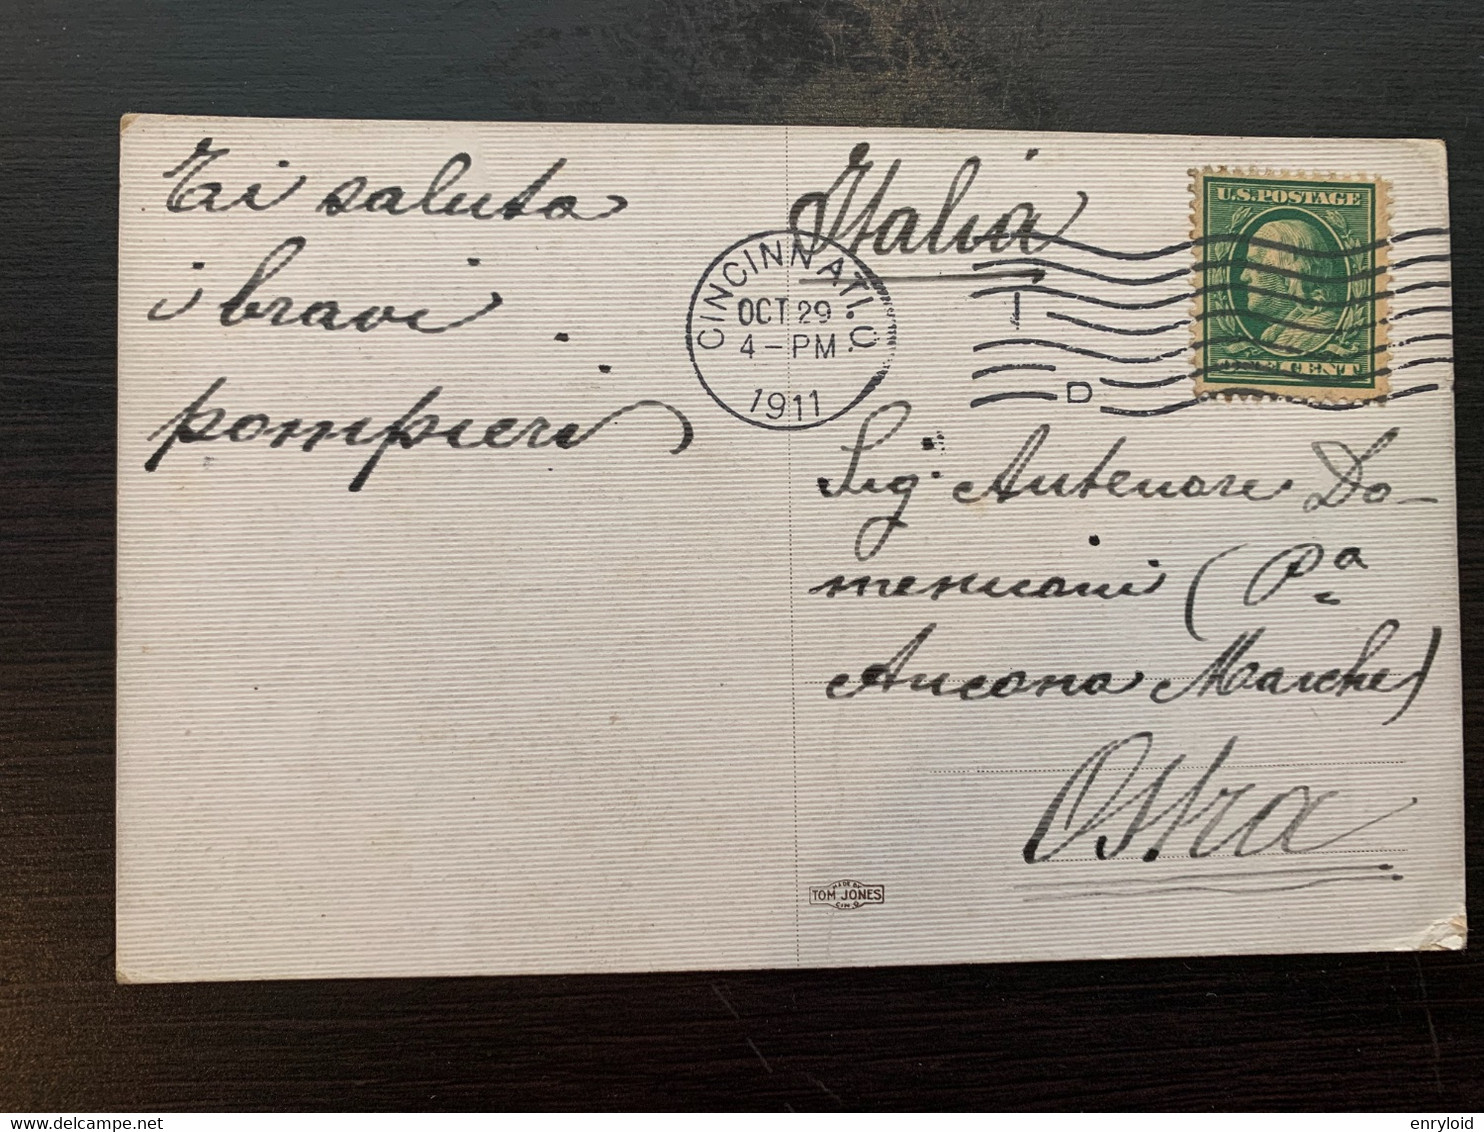 Ti saluta
i bravi
pompieri
Italia
U.S. POSTAGE
ONE CENT
CINCINNATI. O.
OCT 29
4-PM
1911
1
D
Sig. Antenore Do-
menicani (Pa
Ancona Marche)
Ostra
MADE BY
TOM JONES
CIN. O.
delcampe.net
enryloid